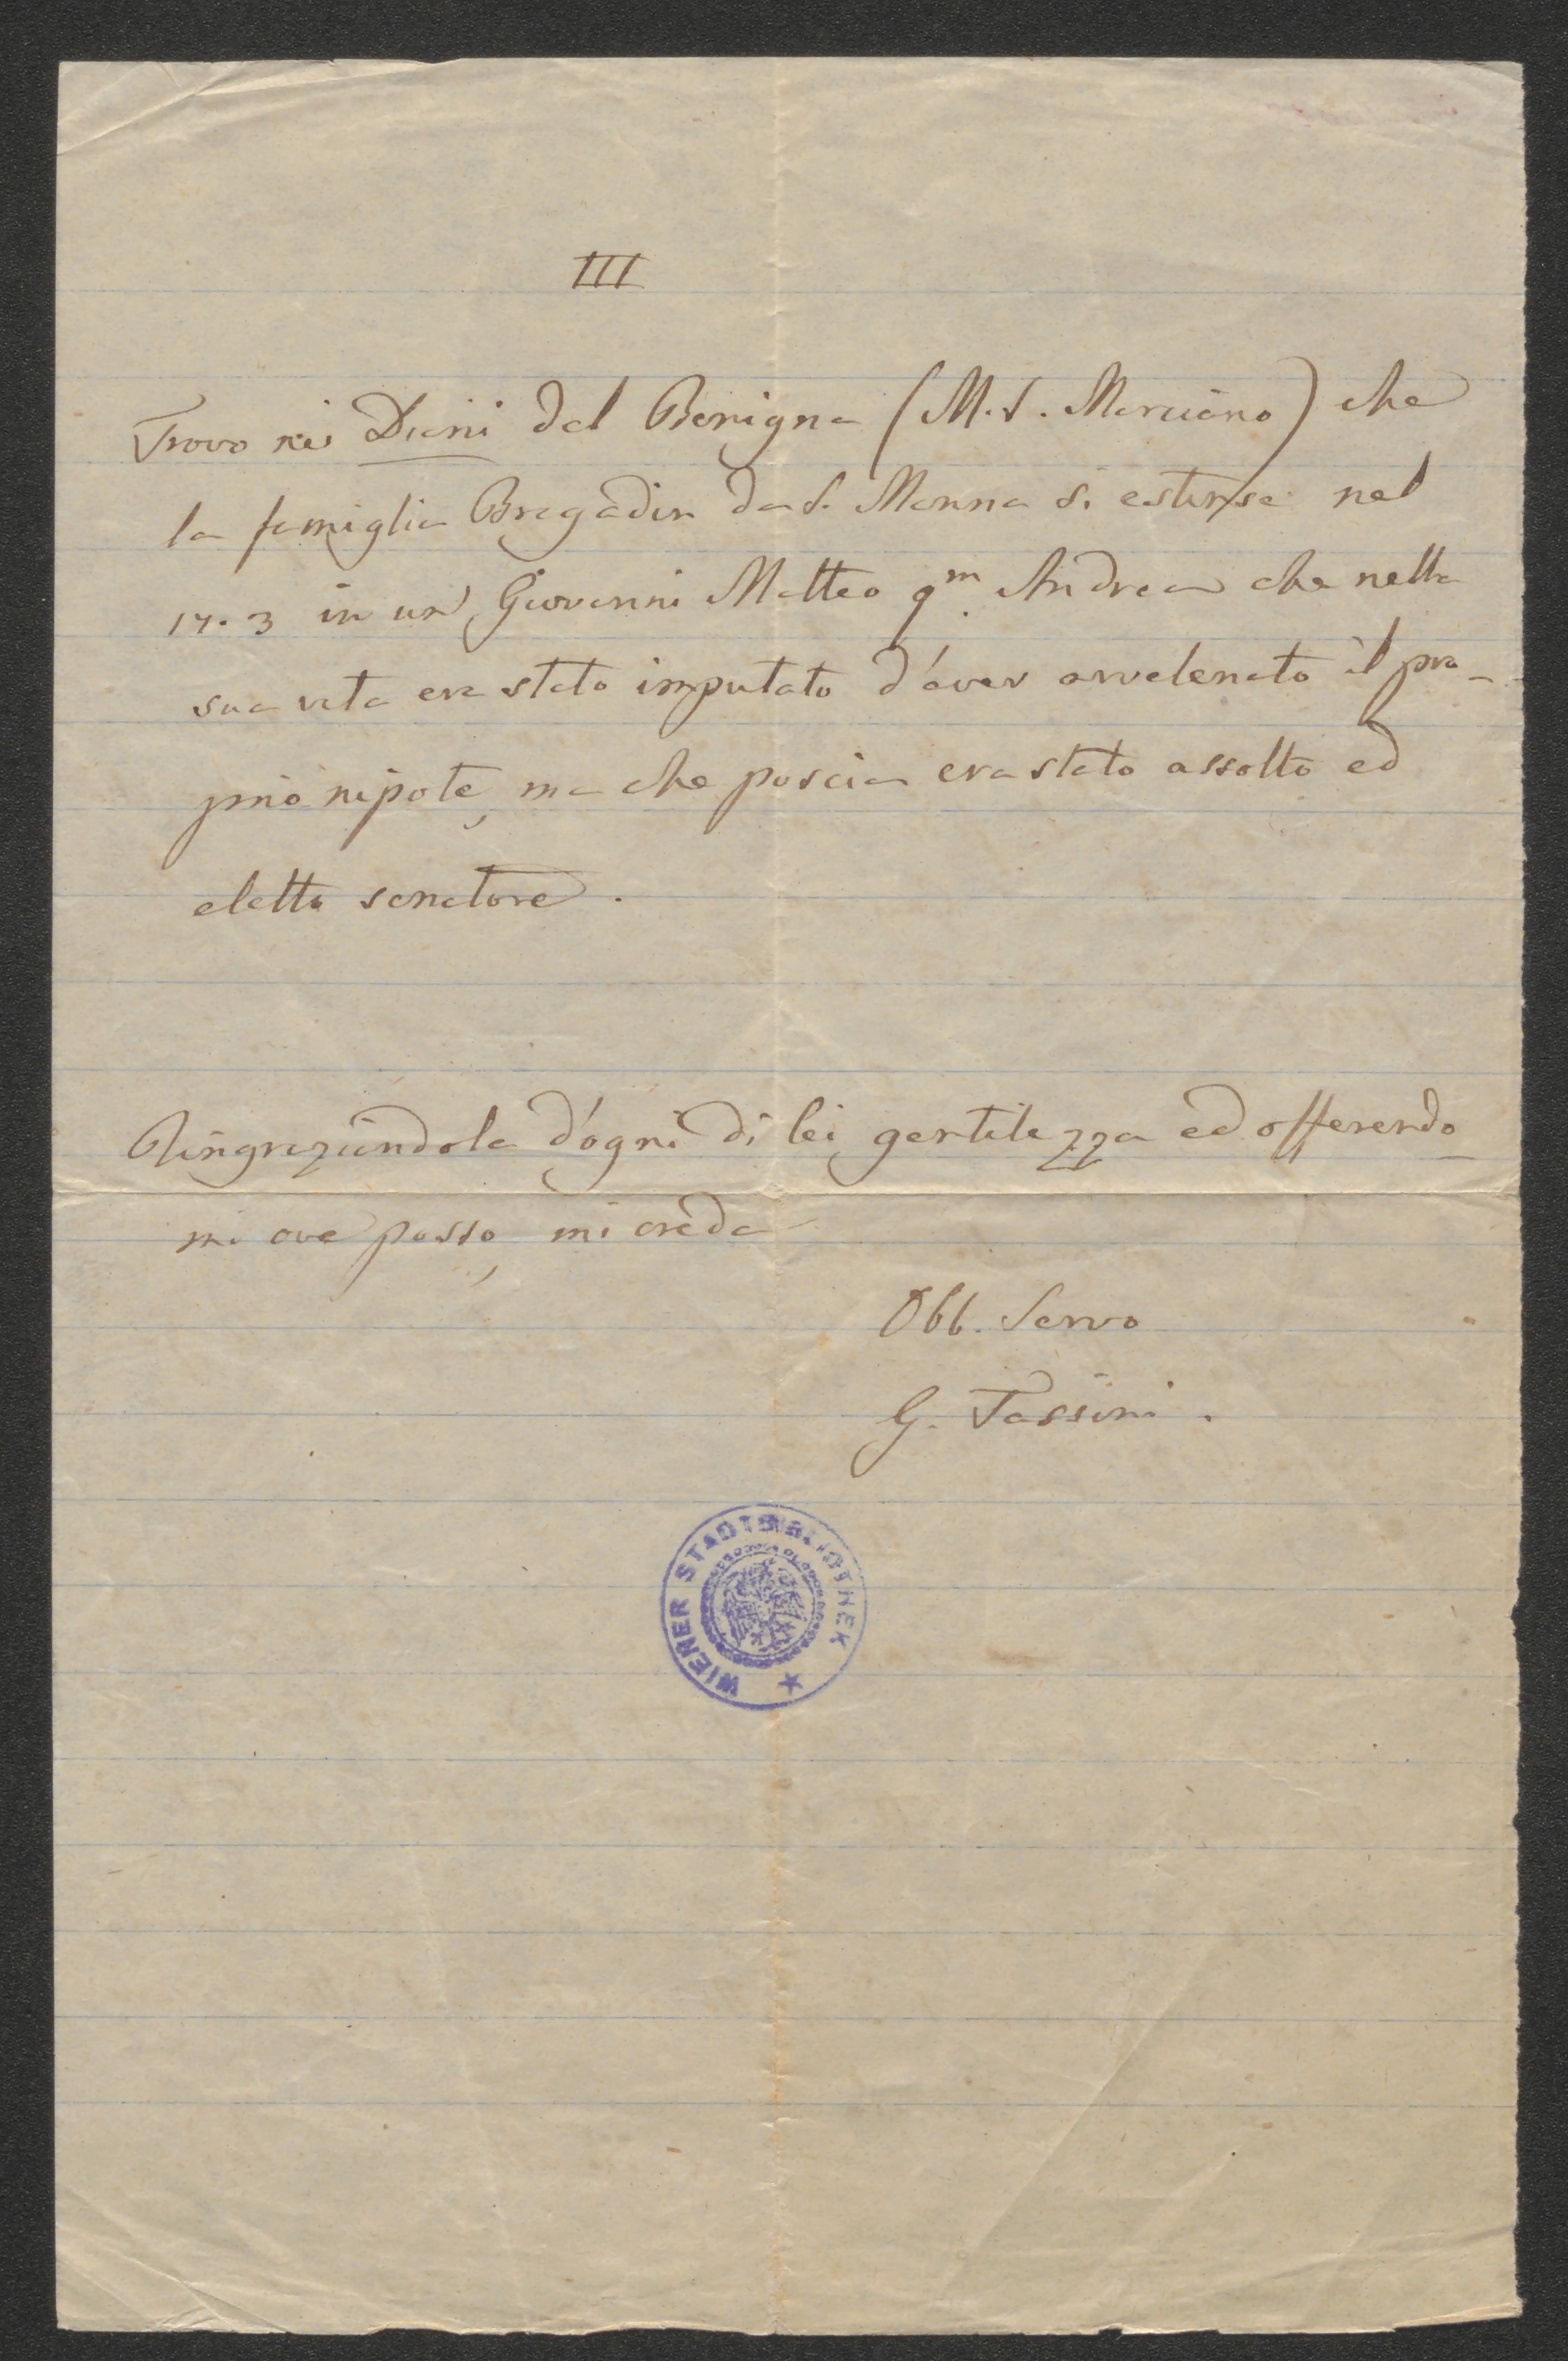 III
Trovo nei Diarii del Benigna (M.S. Marciano) che
la famiglia Bragadin da S. Marina si estinse nel
17.3 in un Giovanni Matteo qm. Andrea che nella
sua vita era stato imputato d'aver avvelenato il pro-
prio nipote, ma che poscia era stato assolto ed
eletto senatore.
Ringraziandola d'ogni di lei gentilezza ed offerendo-
mi ove posso, mi creda
Obb. Servo
G. Tassini.
WIENER STADTBIBLIOTHEK